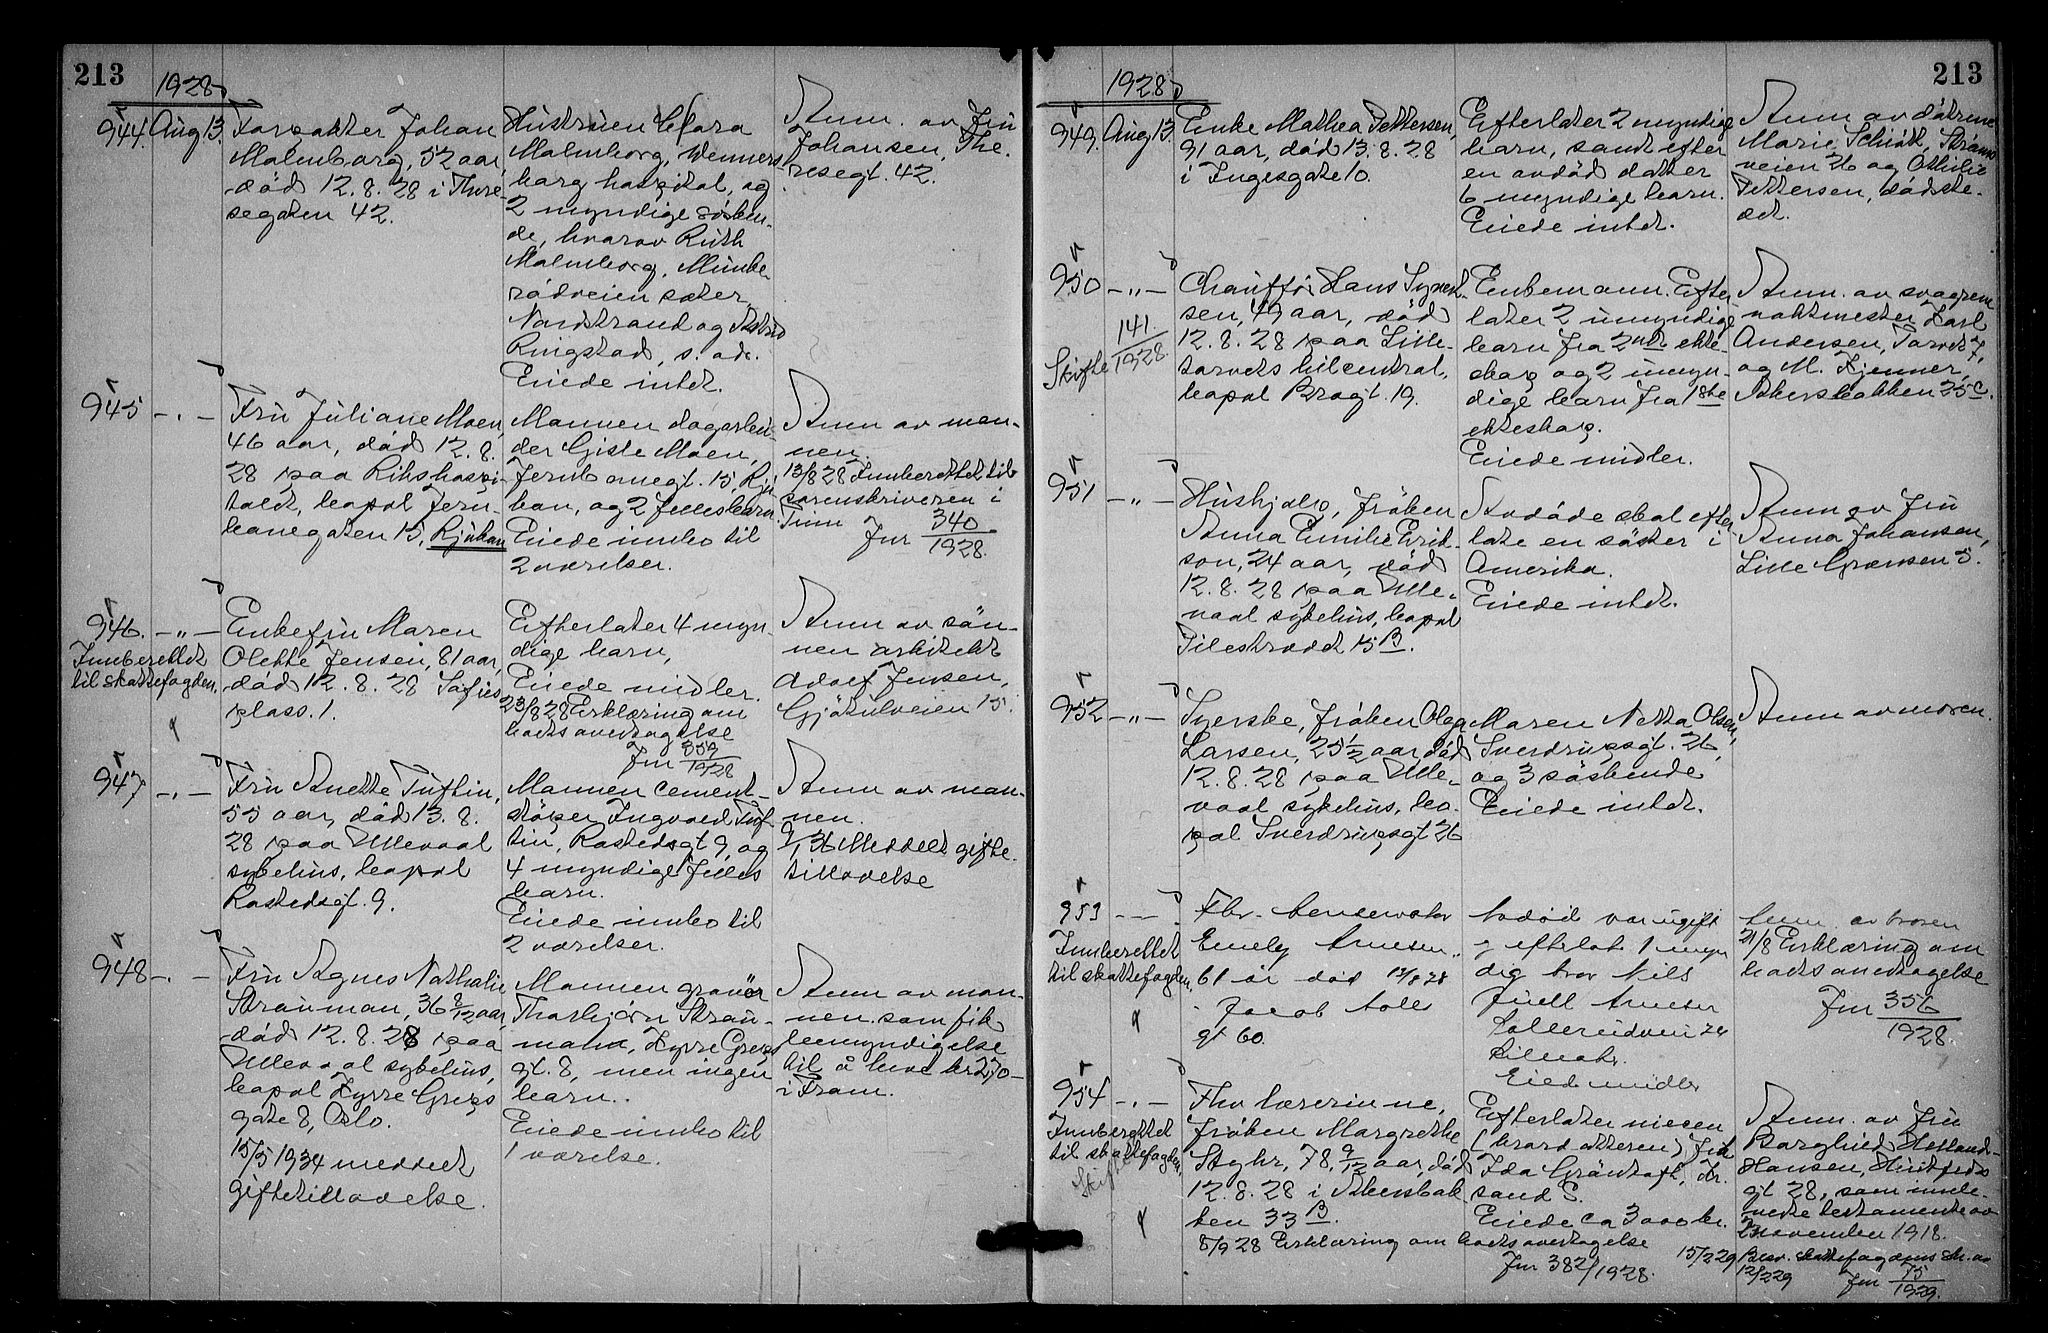 213
1928
944. Aug 13.
Johan
Malmborg, 52 aar,
död 12.8.28 i There-
segaten 42.
Hustruen Clara
Malmborg, Wenners-
borg hospital, og
2 myndige sösken-
de, hvorav Ruth
Malmborg, Munke-
rudveien
Nordstrand og Astrid
Ringstad, s. adr.
Eiede intet.
Anm. av Fru
Johansen, The-
resegt. 42.
945 - " -
Fru Juliane Moen,
46 aar, död 12.8.
28 paa Rikshospi-
talet, bopol Jern-
banegaten 15, Rjukan
Mannen dagarbei-
der Gisle Moen,
Jernbanegt. 15, Rju-
kan, og 2 fellesbarn.
Eiede innbo til
2 værelser.
Anm av man-
nen.
13/8 28 Innberettet til
sorenskriveren i
Tinn
Jnr 340/1928.
946. - " -
Innberettet
til skattefogden.
Enkefru Maren
Olette Jensen, 81 aar,
död 12.8.28 Sofies
plass 1.
Efterlater 4 myn-
dige barn,
Eiede midler.
23/8 28 Erklæring om
bosovertagelse
Jnr 359/1928
Anm av sön-
nen arkitekt
Adolf Jensen,
Gjökulveien 15.
947 - " -
Fru Anette Tuftin,
55 aar, död 13.8.
28 paa Ullevaal
sykehus, bopol
Rostedsgt. 9.
Mannen cement-
stöper Ingvald Tuf-
tin, Rostedsgt 9, og
4 myndige felles
barn.
Eiede innbo til
2 værelser.
Anm av man-
nen.
Meddelt gifte-
tillatelse
948 - " -
Fru Agnes Nathalie
Strauman, 36 8/12 aar,
död 12.8.28 paa
Ullevaal sykehus,
bopol Kyrre Greps
gate 8, Oslo.
15/5 1934 meddelt
giftetillatelse.
Mannen gravör
Thorbjörn Strau-
mann, Kyrre Greps
gt. 8, men ingen
barn.
Eiede innbo til
1 værelse.
Anm av man-
nen som fik
bemyndigelse
til å heve kr 270-
i Fram.
213
1928
949. Aug 13.
Enke Mathea Pettersen,
91 aar, död 13.8.28
i Ingesgate 10.
Efterlater 2 myndige
barn, samt efter
en avdöd datter
6 myndige barn.
Eiede intet.
Anm av dötrene
Marie Schiött, Ströms-
veien 26 og Othilie
Pettersen, dödste-
det.
950 - " -
Skifte 141/1928.
Chaufför Hans Syvert-
sen, 49 aar, död
12.8.28 paa Lille-
torvets bilcentral,
bopol Brogt. 19.
Enkemann. Efter-
later 2 umyndige
barn fra 2net ekte-
skap og 2 umyn-
dige barn fra 1ste
ekteskap.
Eiede midler.
Anm. av svogrene
vaktmester Karl
Andersen, Torvet 7,
og M. Kjenner,
Akersbakken 25 C.
951 - " -
Hushjelp, fröken
Anna Emilie Erik-
son, 24 aar, död
12.8.28 paa Ulle-
vaal sykehus, bopol
Pilestrædet 15 B.
Avdöde skal efter-
late en söster i
Amerika.
Eiede intet.
Anm av Fru
Anna Johansen,
Lille Grænsen 5.
952 - " -
Syerske, fröken Olga
Larsen, 25 1/2 aar, död
12.8.28 paa Ulle-
vaal sykehus, bo-
pol Sverdrupsgt 26
Moren Netta Olsen,
Sverdrupsgt. 26,
og 3 söskende
Eiede intet.
Anm av moren.
953 - " -
Innberettet
til skattefogden.
Fhv.
Emely Arnesen
61 år död 12/8 28
Jacob Aalls
gt 60.
Avdöd var ugift
og efterlot 1 myn
dig bror Nils
Juell Arnesen
Sollerudveien 24
Lilleaker.
Eied midler
Anm. av broren
21/8 Erklæring om
bosovertagelse
Jnr 356/1928.
954 - " -
Innberettet
til skattefogden.
Skifte
Fhv lærerinne,
fröken Margrethe
Styhr, 78 9/12 aar, död
12.8.28 i Akersbak-
ken 33 B.
8/9 28 Erklæring om bosovertagelse
Jnr 382/1928.
Efterlater niesen
(brordatteren) frk
Ida Gröntoft, Kr.
sand S.
Eiede ca 3000 kr.
Anm. av Fru
Borghild Helland-
Hansen,
gt 28, som innle-
verte testamente av
23 november 1918.
15/2 29 Besv. skattefogdens skr. av
12/2 29 Jnr 75/1929.